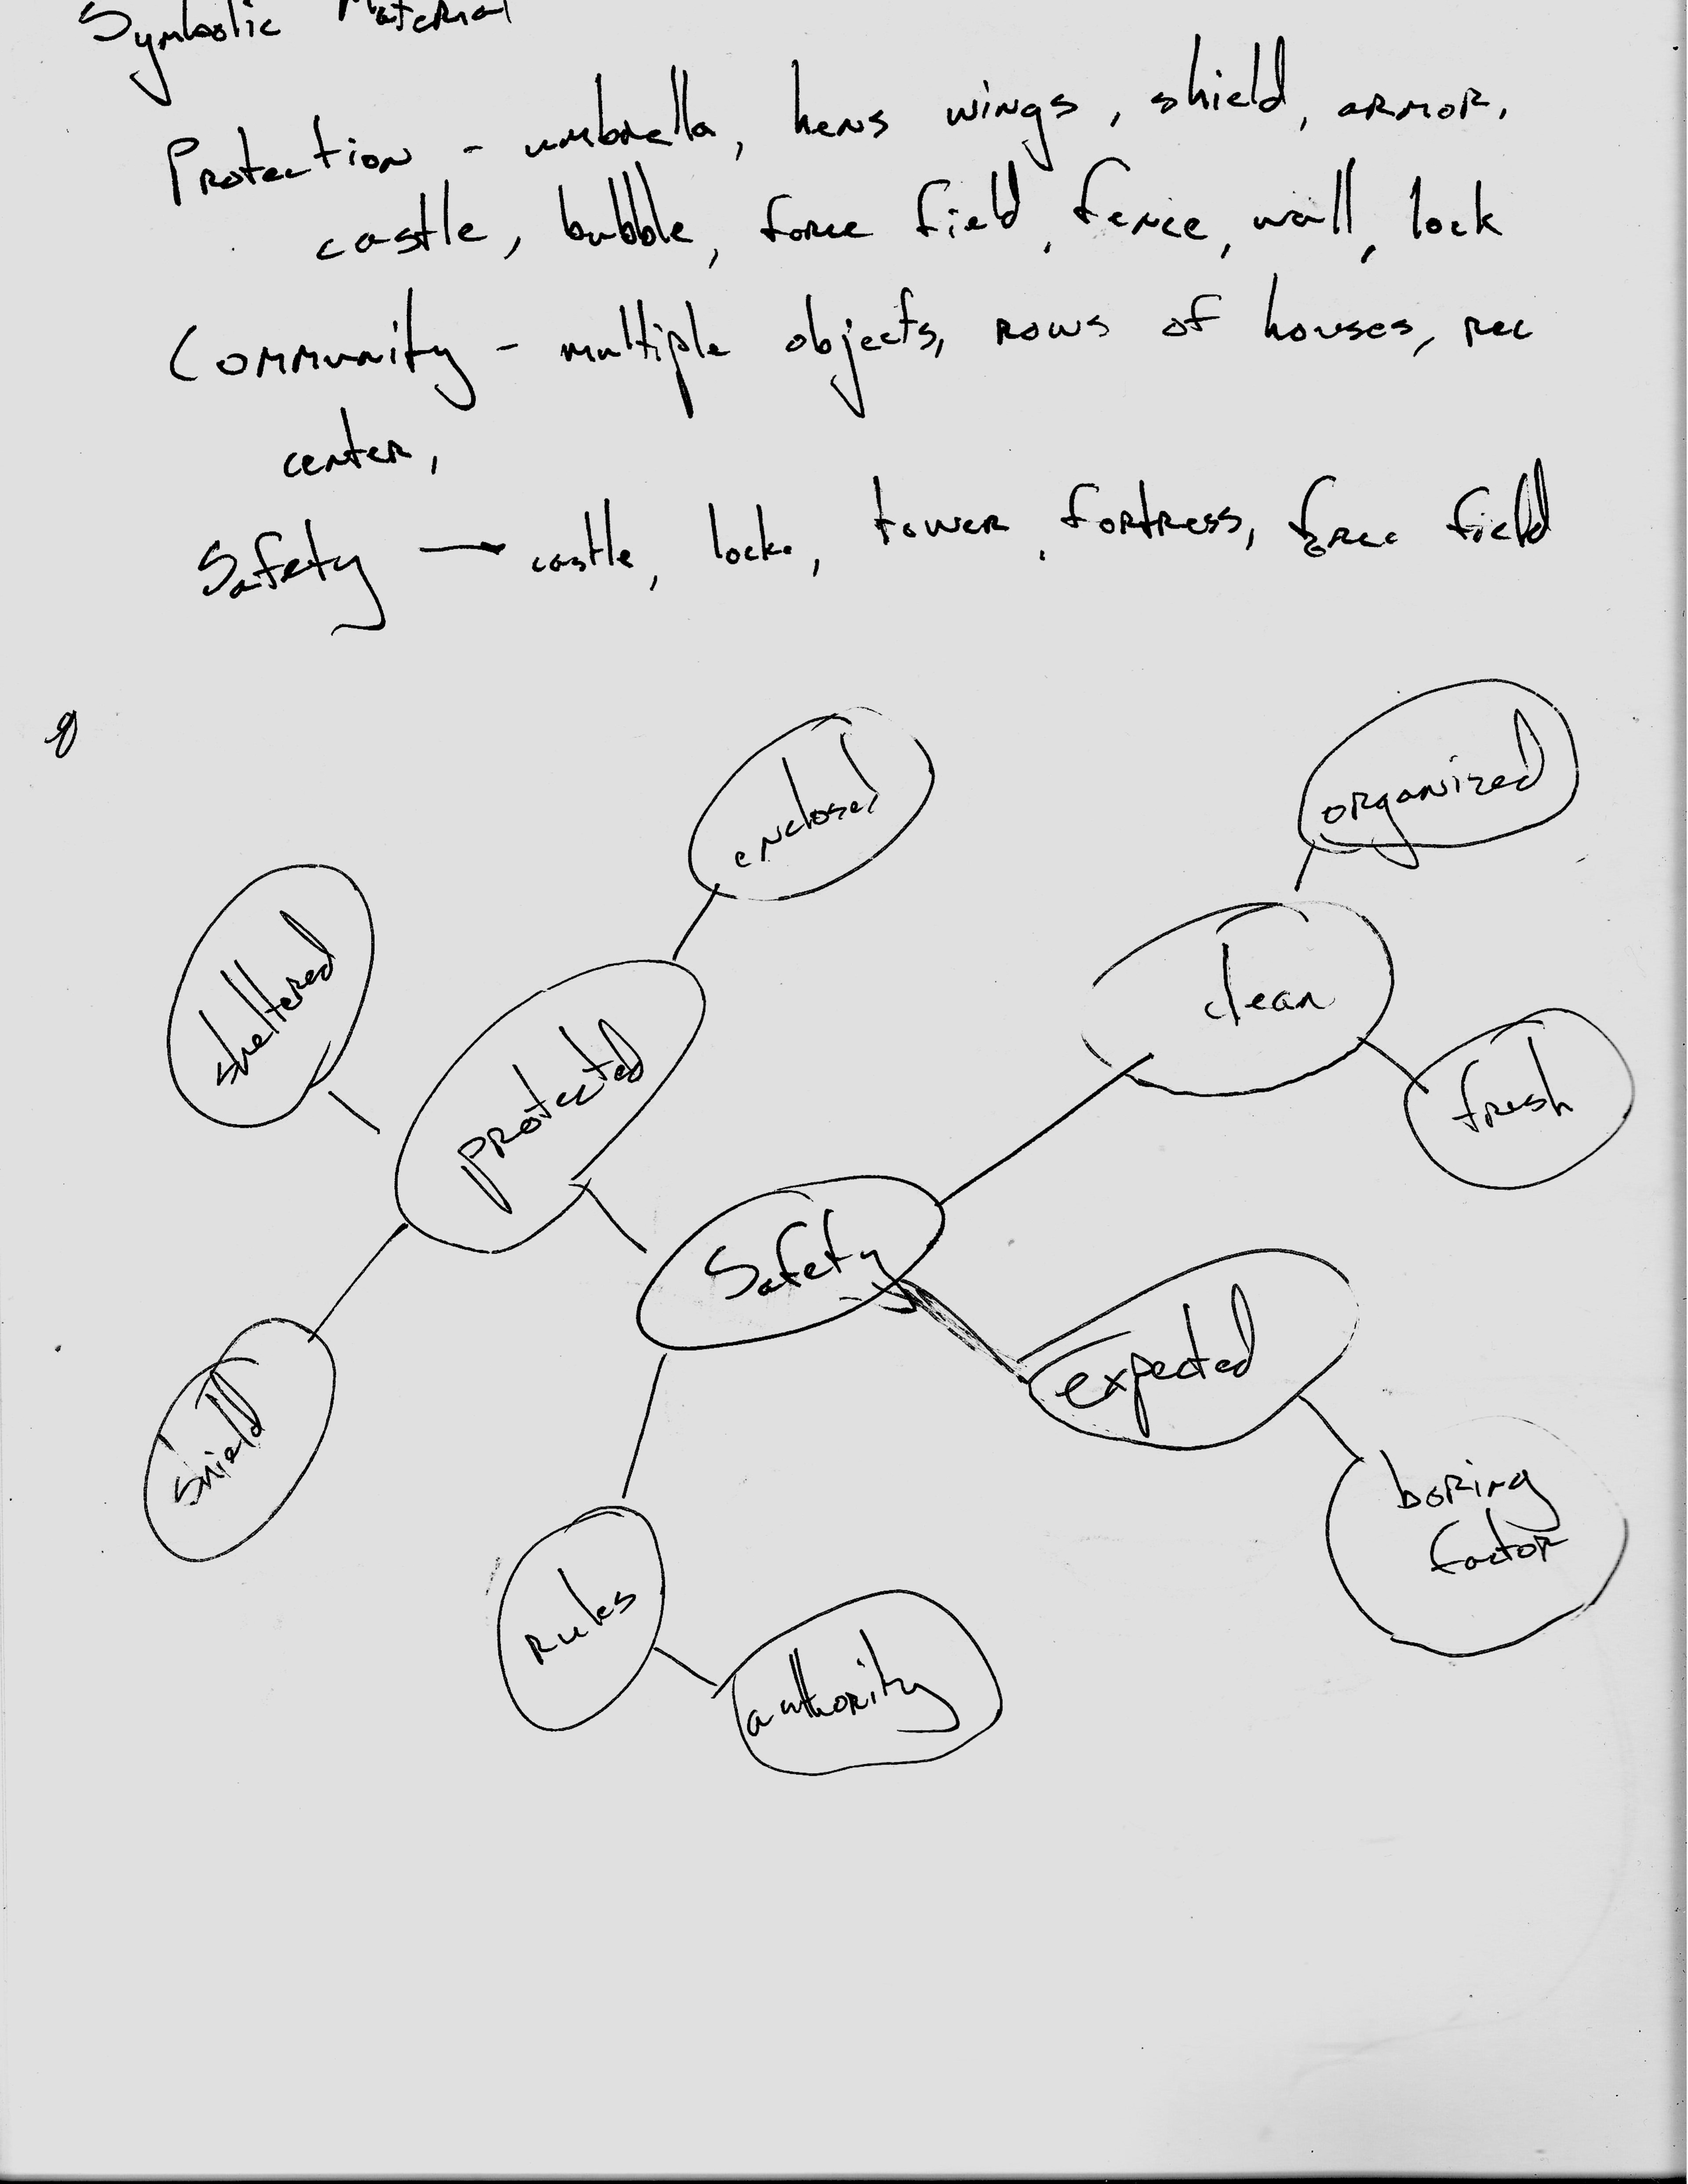 Symbolic Material
Protection - umbrella, hens wings, shield, armor,
castle, bubble, force field, fence, wall, lock
Community - multiple objects, rows of houses, rec
center,
Safety — castle, lock, tower, fortress, force field
organized
enclosed
clean
sheltered
fresh
protected
Safety
expected
shield
boring
factor
rules
authority